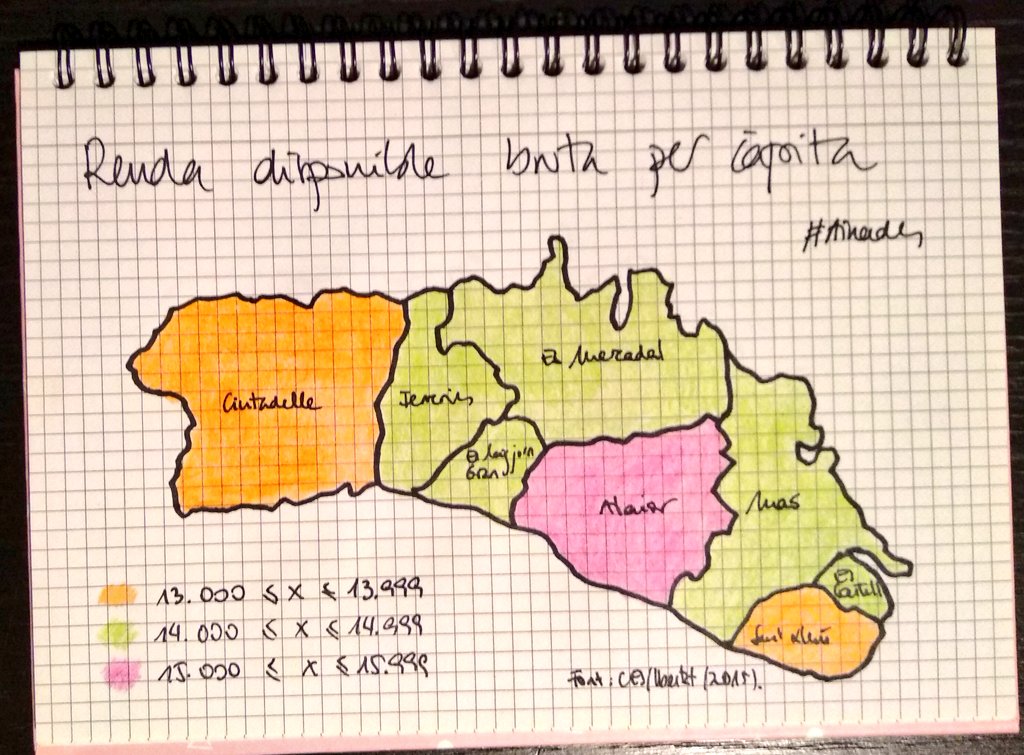 Renda disponible bruta per càpita
Ciutadella
Ferreries
Es Mercadal
Es Migjorn
Gran
Alaior
Maó
Es
Castell
Sant Lluís
13.000 ≤ x ≤ 13.999
14.000 ≤ x ≤ 14.999
15.000 ≤ x ≤ 15.999
Font: (2015).